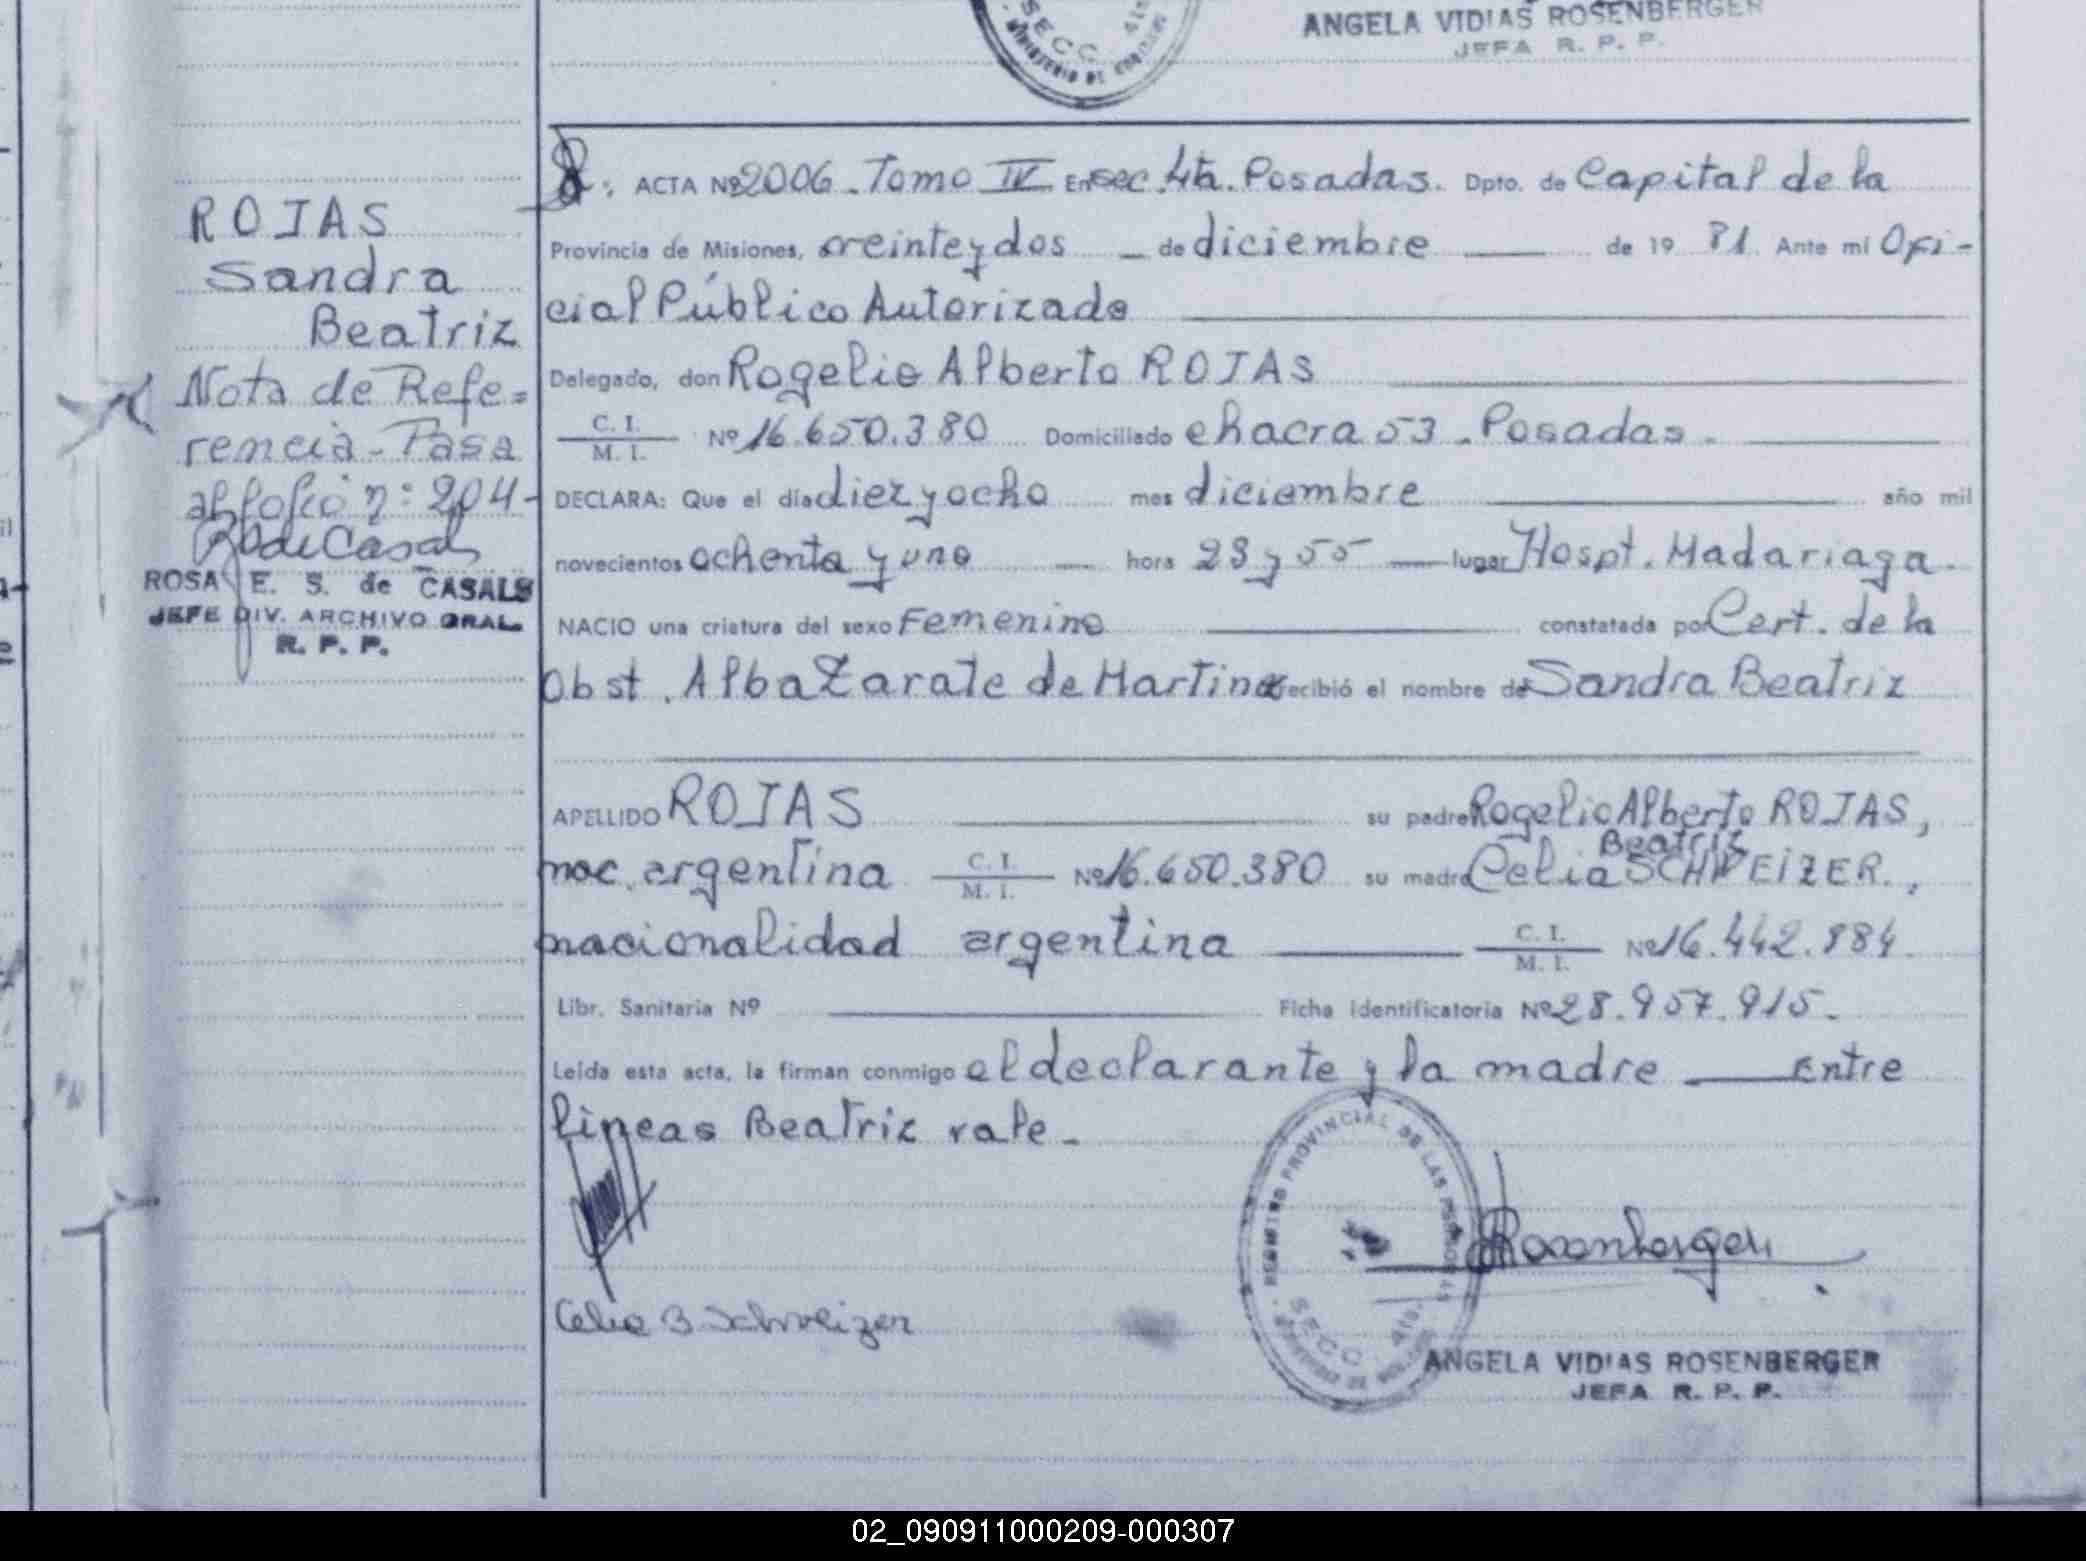 SECC. 4ta
MINISTERIO DE GOBIERNO
ANGELA VIDIAS ROSENBERGER
JEFA R. P. P.
ROJAS
Sandra
Beatriz
Nota de Refe=
rencia - Pasa
al folio nº: 204-
ROSA E. S. de CASALS
JEFE DIV. ARCHIVO GRAL.
R. P. P.
ACTA Nº 2006. Tomo IV En sec. 4ta. Posadas. Dpto. de Capital de la
Provincia de Misiones, veinteydos de diciembre de 19 81. Ante mi Ofi-
cial Público Autorizado
Delegado, don Rogelio Alberto ROJAS
C. I. / M. I. Nº 16.650.380 Domiciliado chacra 53. Posadas.
DECLARA: Que el día diez y ocho mes diciembre año mil
novecientos ochenta y uno hora 23 y 55 lugar Hospt. Madariaga.
NACIO una criatura del sexo Femenino constatada por Cert. de la
Obst. Alba Zarate de Martinez recibió el nombre de Sandra Beatriz
APELLIDO ROJAS su padre Rogelio Alberto ROJAS,
Beatriz
nac. argentina C. I. / M. I. Nº 16.650.380 su madre Celia SCHWEIZER.,
nacionalidad argentina C. I. / M. I. Nº 16.442.884.
Libr. Sanitaria Nº Ficha Identificatoria Nº 28.957.915.
Leída esta acta, la firman conmigo el declarante y la madre Entre
lineas Beatriz vale.
REGISTRO PROVINCIAL DE LAS PERSONAS
SECC. 4ta
Rosenberger
Celia B Schweizer
ANGELA VIDIAS ROSENBERGER
JEFA R. P. P.
02_090911000209-000307